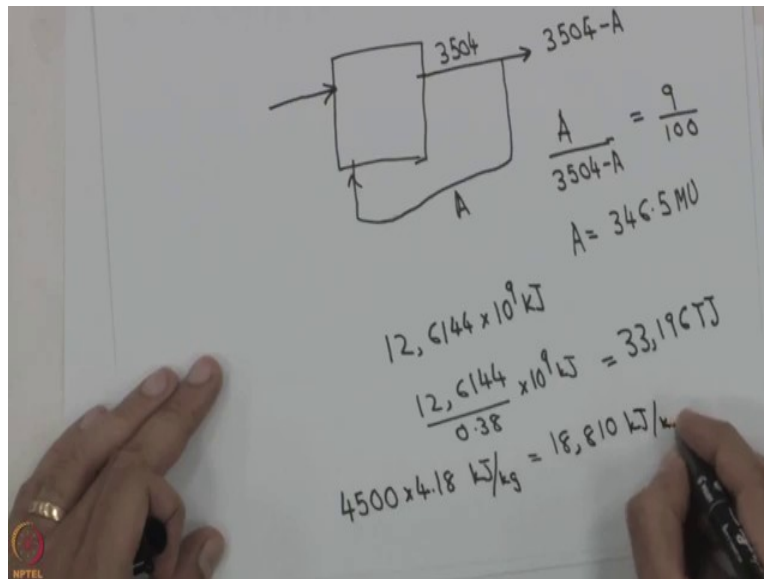 3504
3504-A
A
A/3504-A = 9/100
A = 346.5 MU
12,6144 x 10^9 kJ
12,6144/0.38 x 10^9 kJ = 33,196 TJ
4500 x 4.18 kJ/kg = 18,810 kJ/k
NPTEL